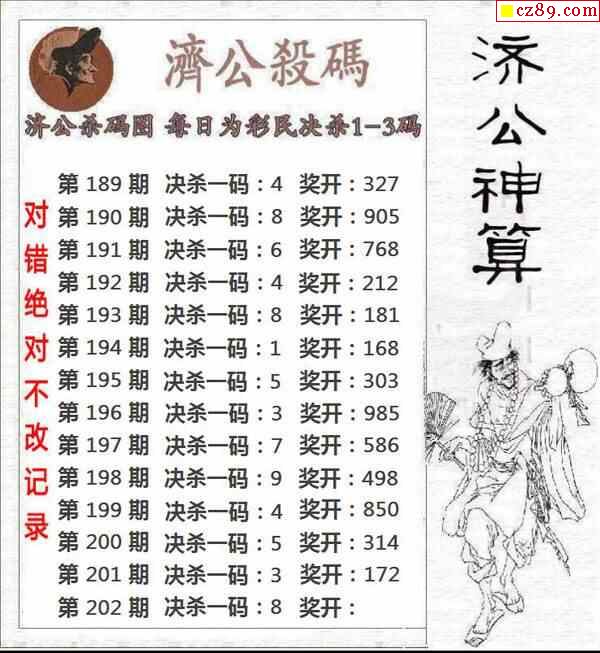 cz89.com
濟公殺碼
济公杀码图 每日为彩民决杀1-3码
第 189 期 决杀一码：4 奖开：327
第 190 期 决杀一码：8 奖开：905
第 191 期 决杀一码：6 奖开：768
第 192 期 决杀一码：4 奖开：212
第 193 期 决杀一码：8 奖开：181
第 194 期 决杀一码：1 奖开：168
第 195 期 决杀一码：5 奖开：303
第 196 期 决杀一码：3 奖开：985
第 197 期 决杀一码：7 奖开：586
第 198 期 决杀一码：9 奖开：498
第 199 期 决杀一码：4 奖开：850
第 200 期 决杀一码：5 奖开：314
第 201 期 决杀一码：3 奖开：172
第 202 期 决杀一码：8 奖开：
对错绝对不改记录
济公神算